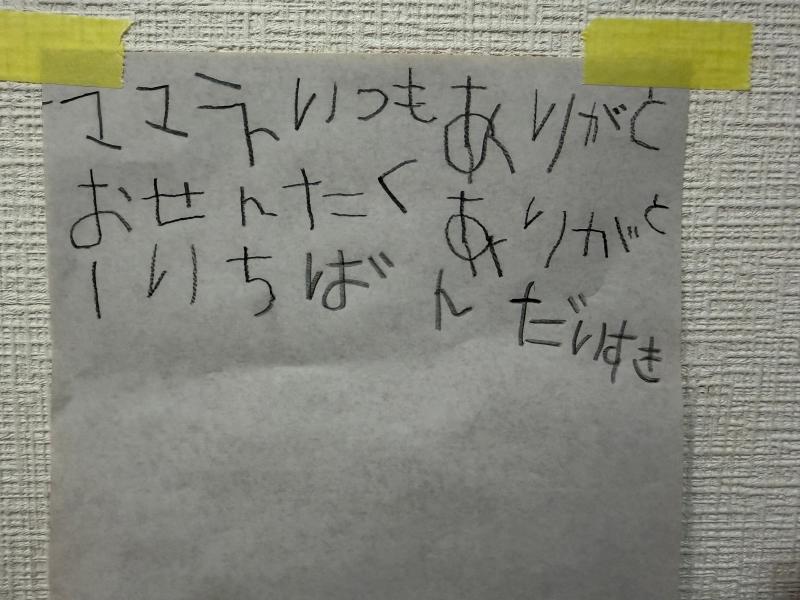 ママえいつもありがと
おせんたくありがと
ーいちばんだいすき